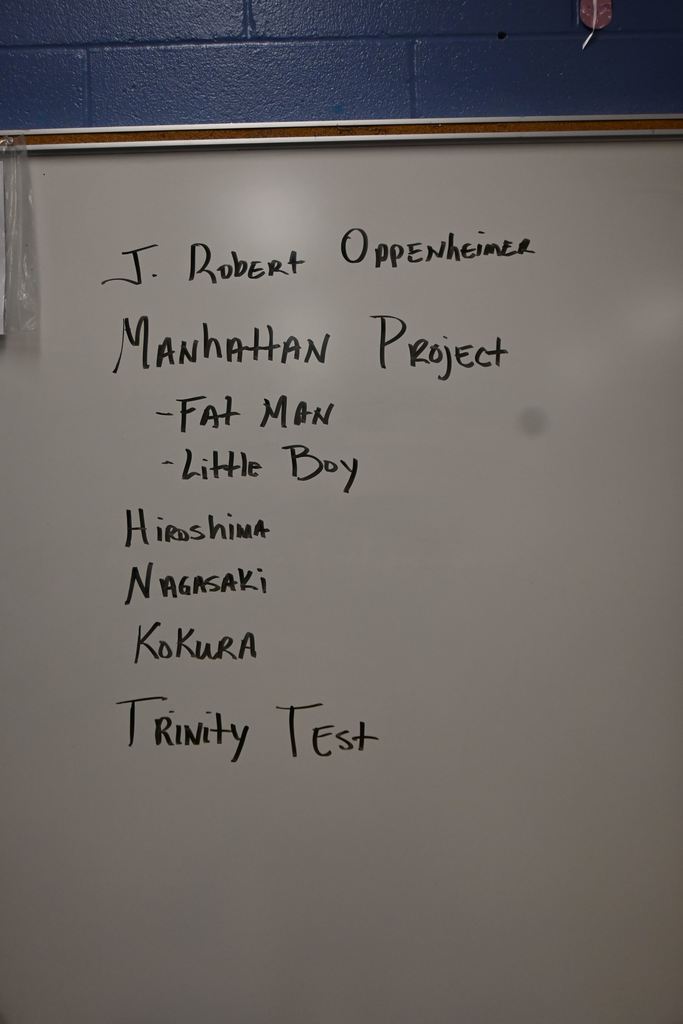 J. Robert Oppenheimer
Manhattan Project
- Fat Man
- Little Boy
Hiroshima
Nagasaki
Kokura
Trinity Test